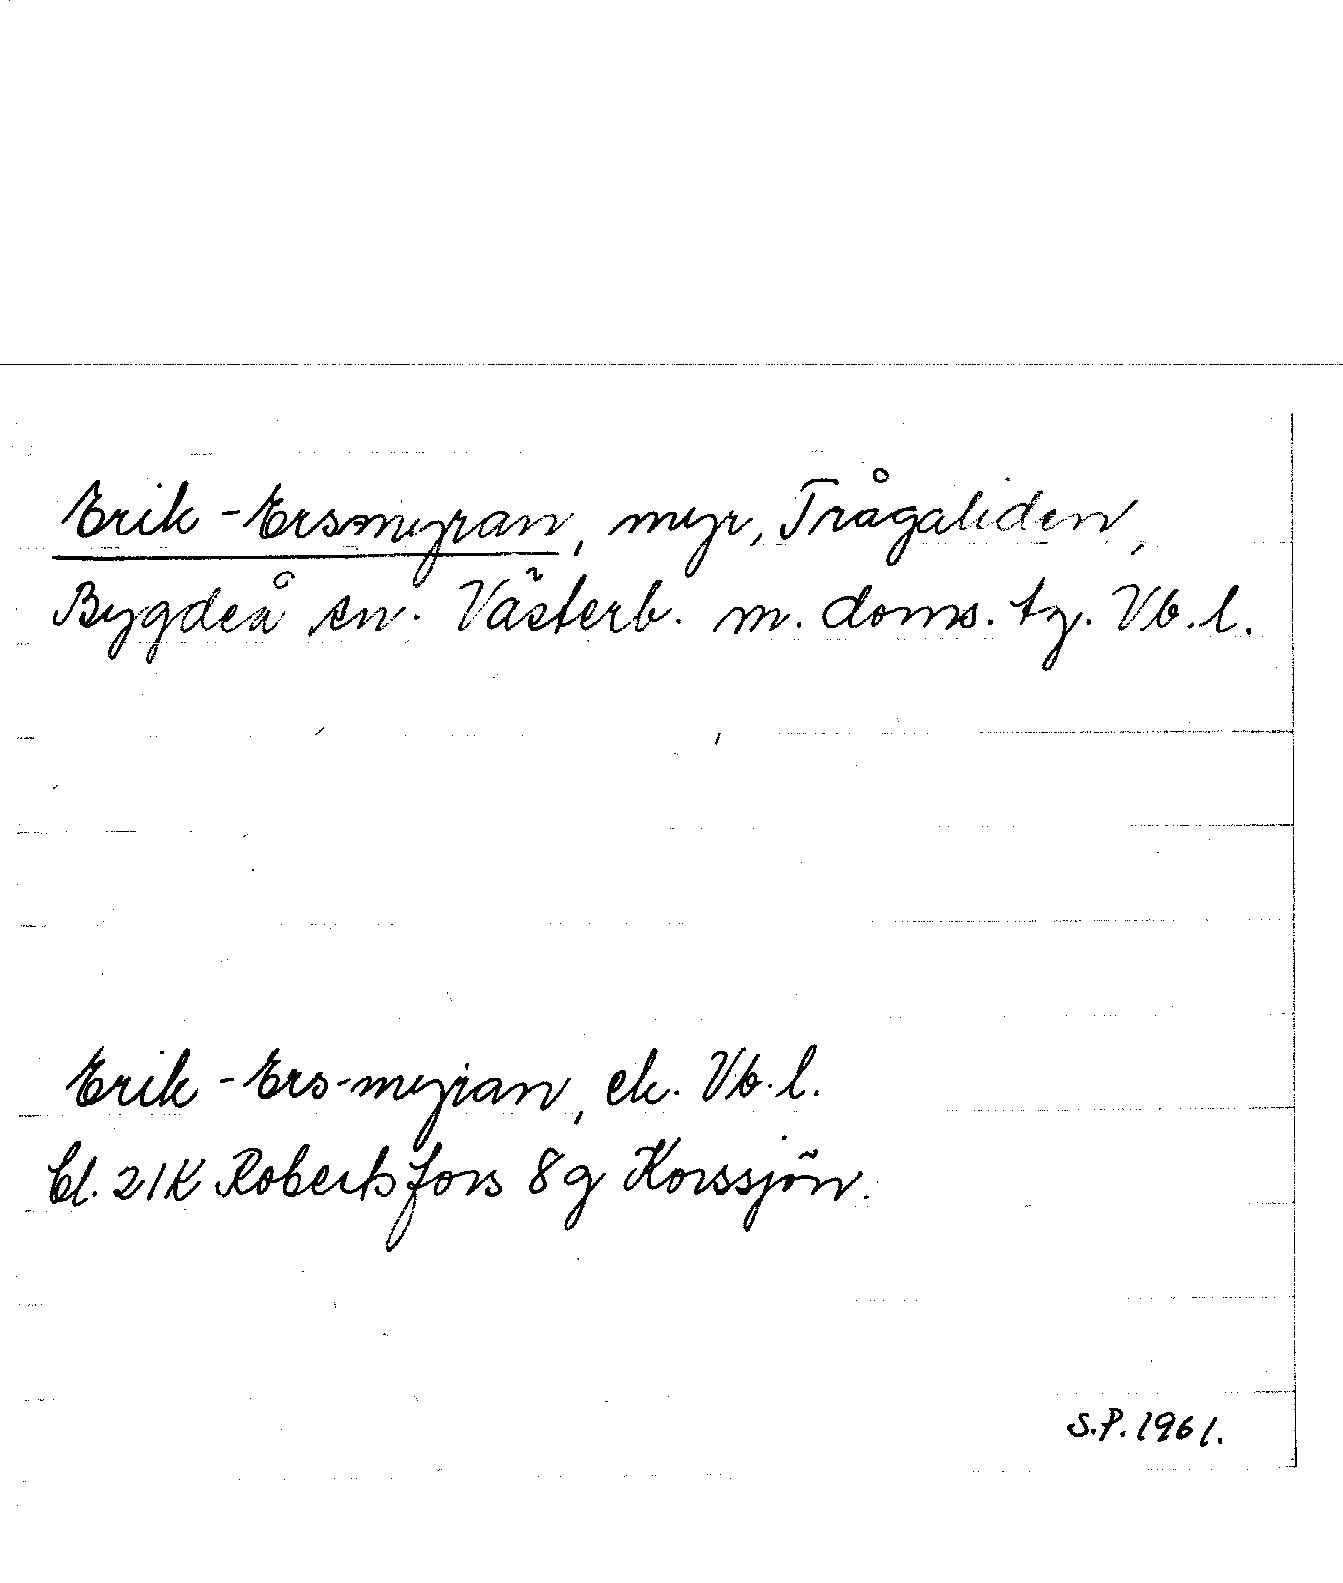 Erik-Ersmyran, myr, Trågaliden,
Bygdeå sn. Västerb. m. doms. tg. Vb. l.
Erik-Ers-myran, ek. Vb. l.
bl. 21K Robertsfors 8g Korssjön.
S.P. 1961.